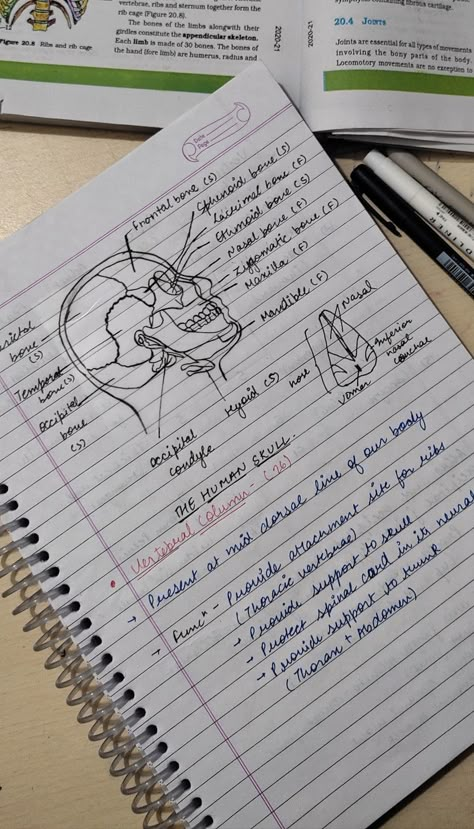 vertebrae, ribs and sternum together form the
rib cage (Figure 20.8).
The bones of the limbs alongwith their
girdles constitute the appendicular skeleton.
Each limb is made of 30 bones. The bones of
the hand (fore limb) are humerus, radius and
Figure 20.8 Ribs and rib cage
2020-21
2020-21
20.4 JOINTS
Joints are essential for all types of movements
involving the bony parts of the body.
Locomotory movements are no exception to
Date
Page
Frontal bone (S)
Sphenoid bone (S)
Lacrimal bone (F)
Ethmoid bone (S)
Nasal bone (F)
Zygomatic bone (F)
Maxilla (F)
Mandible (F)
bone
(S)
Temporal
bone (S)
Occipital
bone
(S)
Occipital
condyle
Hyoid (S)
Nasal
Inferior
nasal
conchae
nose
vomer
THE HUMAN SKULL.
• Vertebral Column (26)
→ Present at mid dorsal line of our body
→ Funcⁿ - Provide attachment site for ribs
(Thoracic vertebrae)
→ Provide support to skull
→ Protect spinal cord in its neural
→ Provide support to trunk
(Thorax + Abdomen)